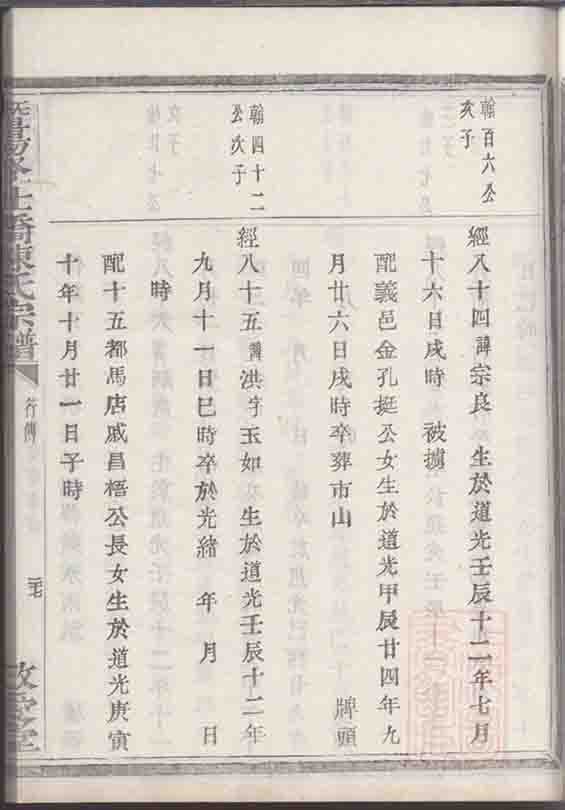 翰百六公
亥子
經八十四諱宗良 生於道光壬辰十二年七月
十六日戌時 被擄
配義邑金孔挺公女生於道光甲辰廿四年九
月廿六日戌時卒葬市山 牌頭
翰四十二
公次子
經八十五諱洪字玉如生於道光壬辰十二年
九月十一日巳時卒於光緒 年 月 日
時
配十五都馬店戚昌梧公長女生於道光庚寅
十年十月廿一日子時
陳氏宗譜
行傳